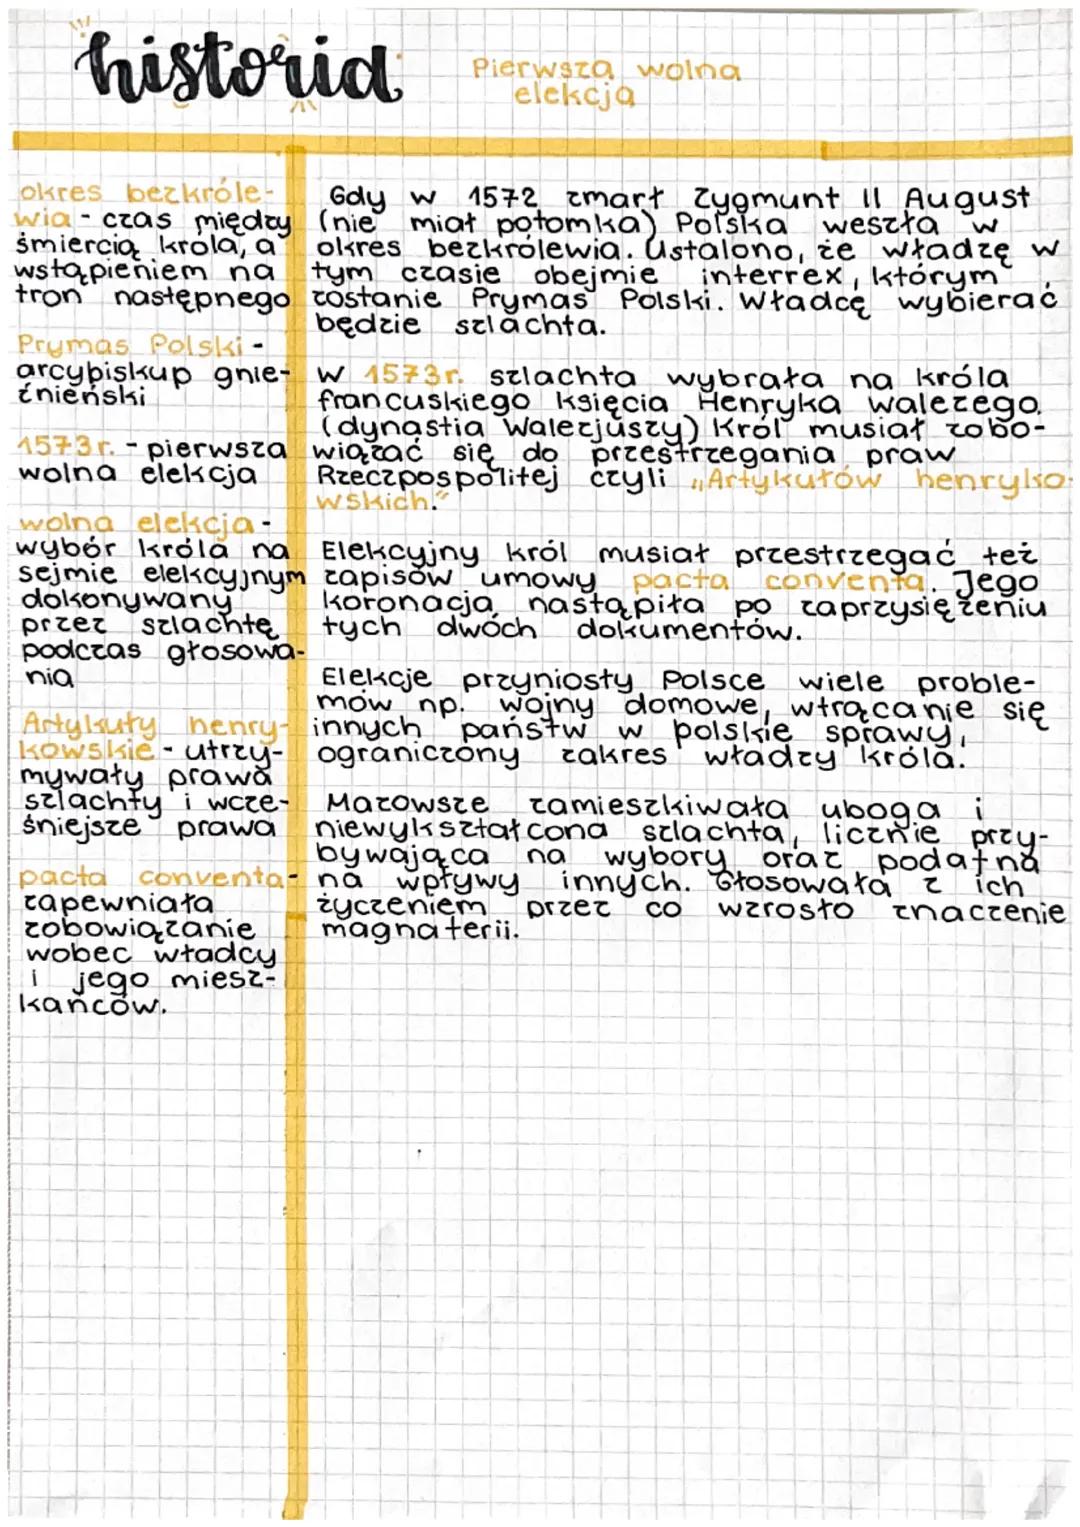 historia
Pierwsza wolna
elekcja
okres bezkróle-
wia - czas między
śmiercią króla, a
wstąpieniem na
tron następnego
Prymas Polski -
arcybiskup gnie-
źnieński
1573r. - pierwsza
wolna elekcja
wolna elekcja -
wybór króla na
sejmie elekcyjnym
dokonywany
przez szlachtę
podczas głosowa-
nia
Artykuły henry-
kowskie - utrzy-
mywały prawa
szlachty i wcze-
śniejsze prawa
pacta conventa -
zapewniała
zobowiązanie
wobec władcy
i jego miesz-
kańców.
Gdy w 1572 zmarł Zygmunt II August
(nie miał potomka) Polska weszła w
okres bezkrólewia. Ustalono, że władzę w
tym czasie obejmie interrex, którym
zostanie Prymas Polski. Władcę wybierać
będzie szlachta.
W 1573r. szlachta wybrała na króla
francuskiego księcia Henryka Walezego.
(dynastia Walezjuszy) Król musiał zobo-
wiązać się do przestrzegania praw
Rzeczpospolitej czyli „Artykułów henryko-
wskich."
Elekcyjny król musiał przestrzegać też
zapisów umowy pacta conventa. Jego
koronacja nastąpiła po zaprzysiężeniu
tych dwóch dokumentów.
Elekcje przyniosły Polsce wiele proble-
mów np. wojny domowe, wtrącanie się
innych państw w polskie sprawy,
ograniczony zakres władzy króla.
Mazowsze zamieszkiwała uboga i
niewykształcona szlachta, licznie przy-
bywająca na wybory oraz podatna
na wpływy innych. Głosowała z ich
życzeniem przez co wzrosło znaczenie
magnaterii.